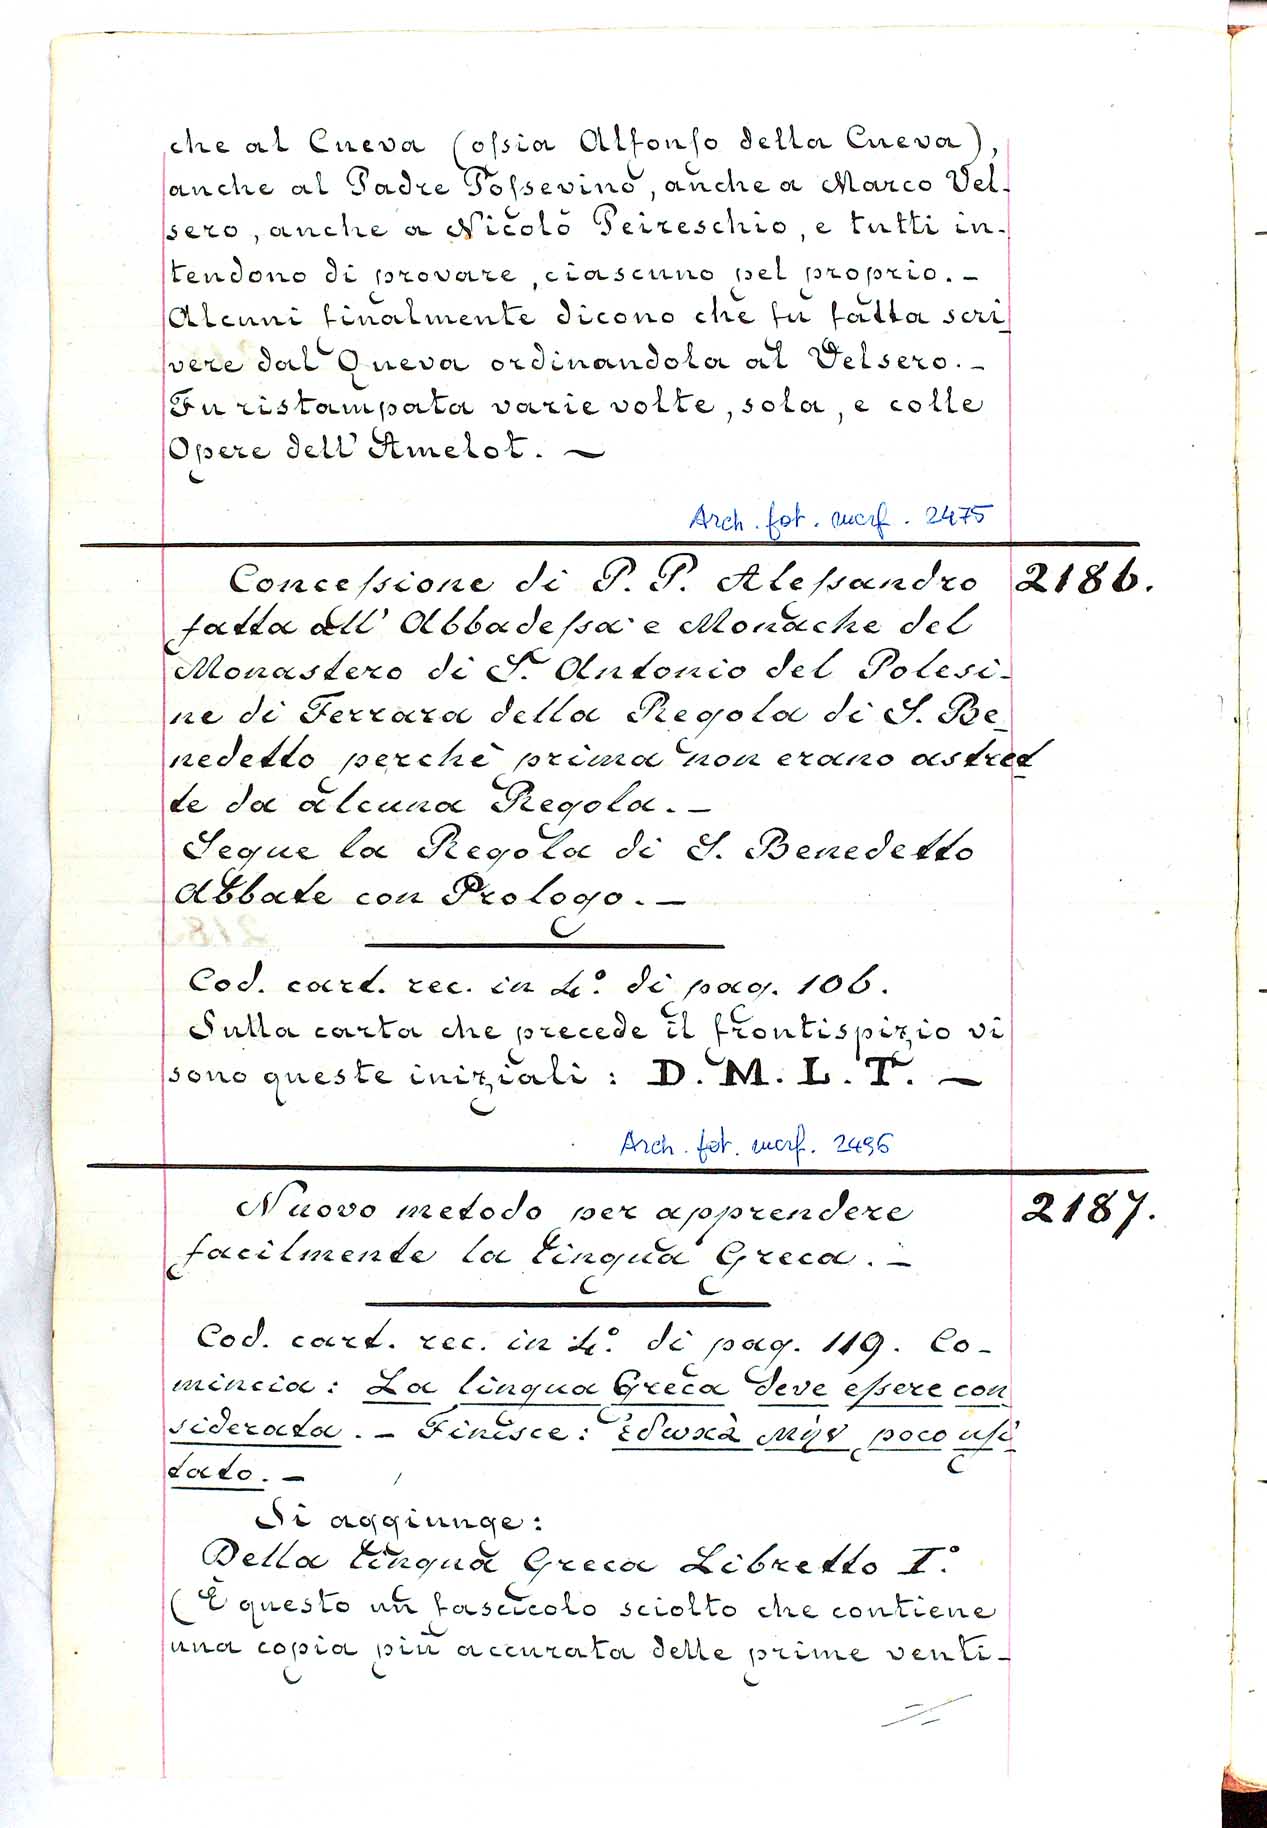 che al Cueva (ossia Alfonso della Cueva),
anche al Padre Possevino, anche a Marco Vel-
sero, anche a Nicolò Peireschio, e tutti in-
tendono di provare, ciascuno pel proprio. -
Alcuni finalmente dicono che fu fatta scri
vere dal Queva ordinandola al Velsero. -
Fu ristampata varie volte, sola, e colle
Opere dell' Amelot. —
Arch. fot. marf. 2475
Concessione di P. P. Alessandro 2186.
fatta all' Abbadessa e Monache del
Monastero di S. Antonio del Polesi-
ne di Ferrara della Regola di S. Be_
nedetto perchè prima non erano astret
te da alcuna Regola. -
Segue la Regola di S. Benedetto
Abbate con Prologo. -
Cod. cart. rec. in 4.° di pag. 106.
Sulla carta che precede il frontispizio vi
sono queste iniziali: D. M. L. T. —
Arch. fot. marf. 2496
Nuovo metodo per apprendere 2187.
facilmente la lingua Greca. -
Cod. cart. rec. in 4.° di pag. 119. Co-
mincia: La lingua Greca deve essere con
siderata. - Finisce: ἐδωκὰ μην poco usi
tato. -
Si aggiunge:
Della lingua Greca Libretto I.°
(È questo un fascicolo sciolto che contiene
una copia più accurata delle prime venti-